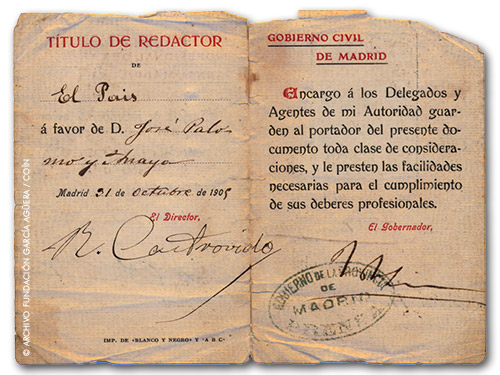 TÍTULO DE REDACTOR
DE
El Pais
á favor de D. José Palo
mo y Anaya
Madrid 31 de Octubre de 1905
El Director,
R. Castrovido
IMP. DE «BLANCO Y NEGRO» Y «A B C»
GOBIERNO CIVIL
DE MADRID
Encargo á los Delegados y
Agentes de mi Autoridad guar-
den al portador del presente do-
cumento toda clase de considera-
ciones, y le presten las facilidades
necesarias para el cumplimiento
de sus deberes profesionales.
El Gobernador,
GOBIERNO DE LA PROVINCIA
DE
MADRID
© ARCHIVO FUNDACIÓN GARCÍA AGÜERA / COÍN